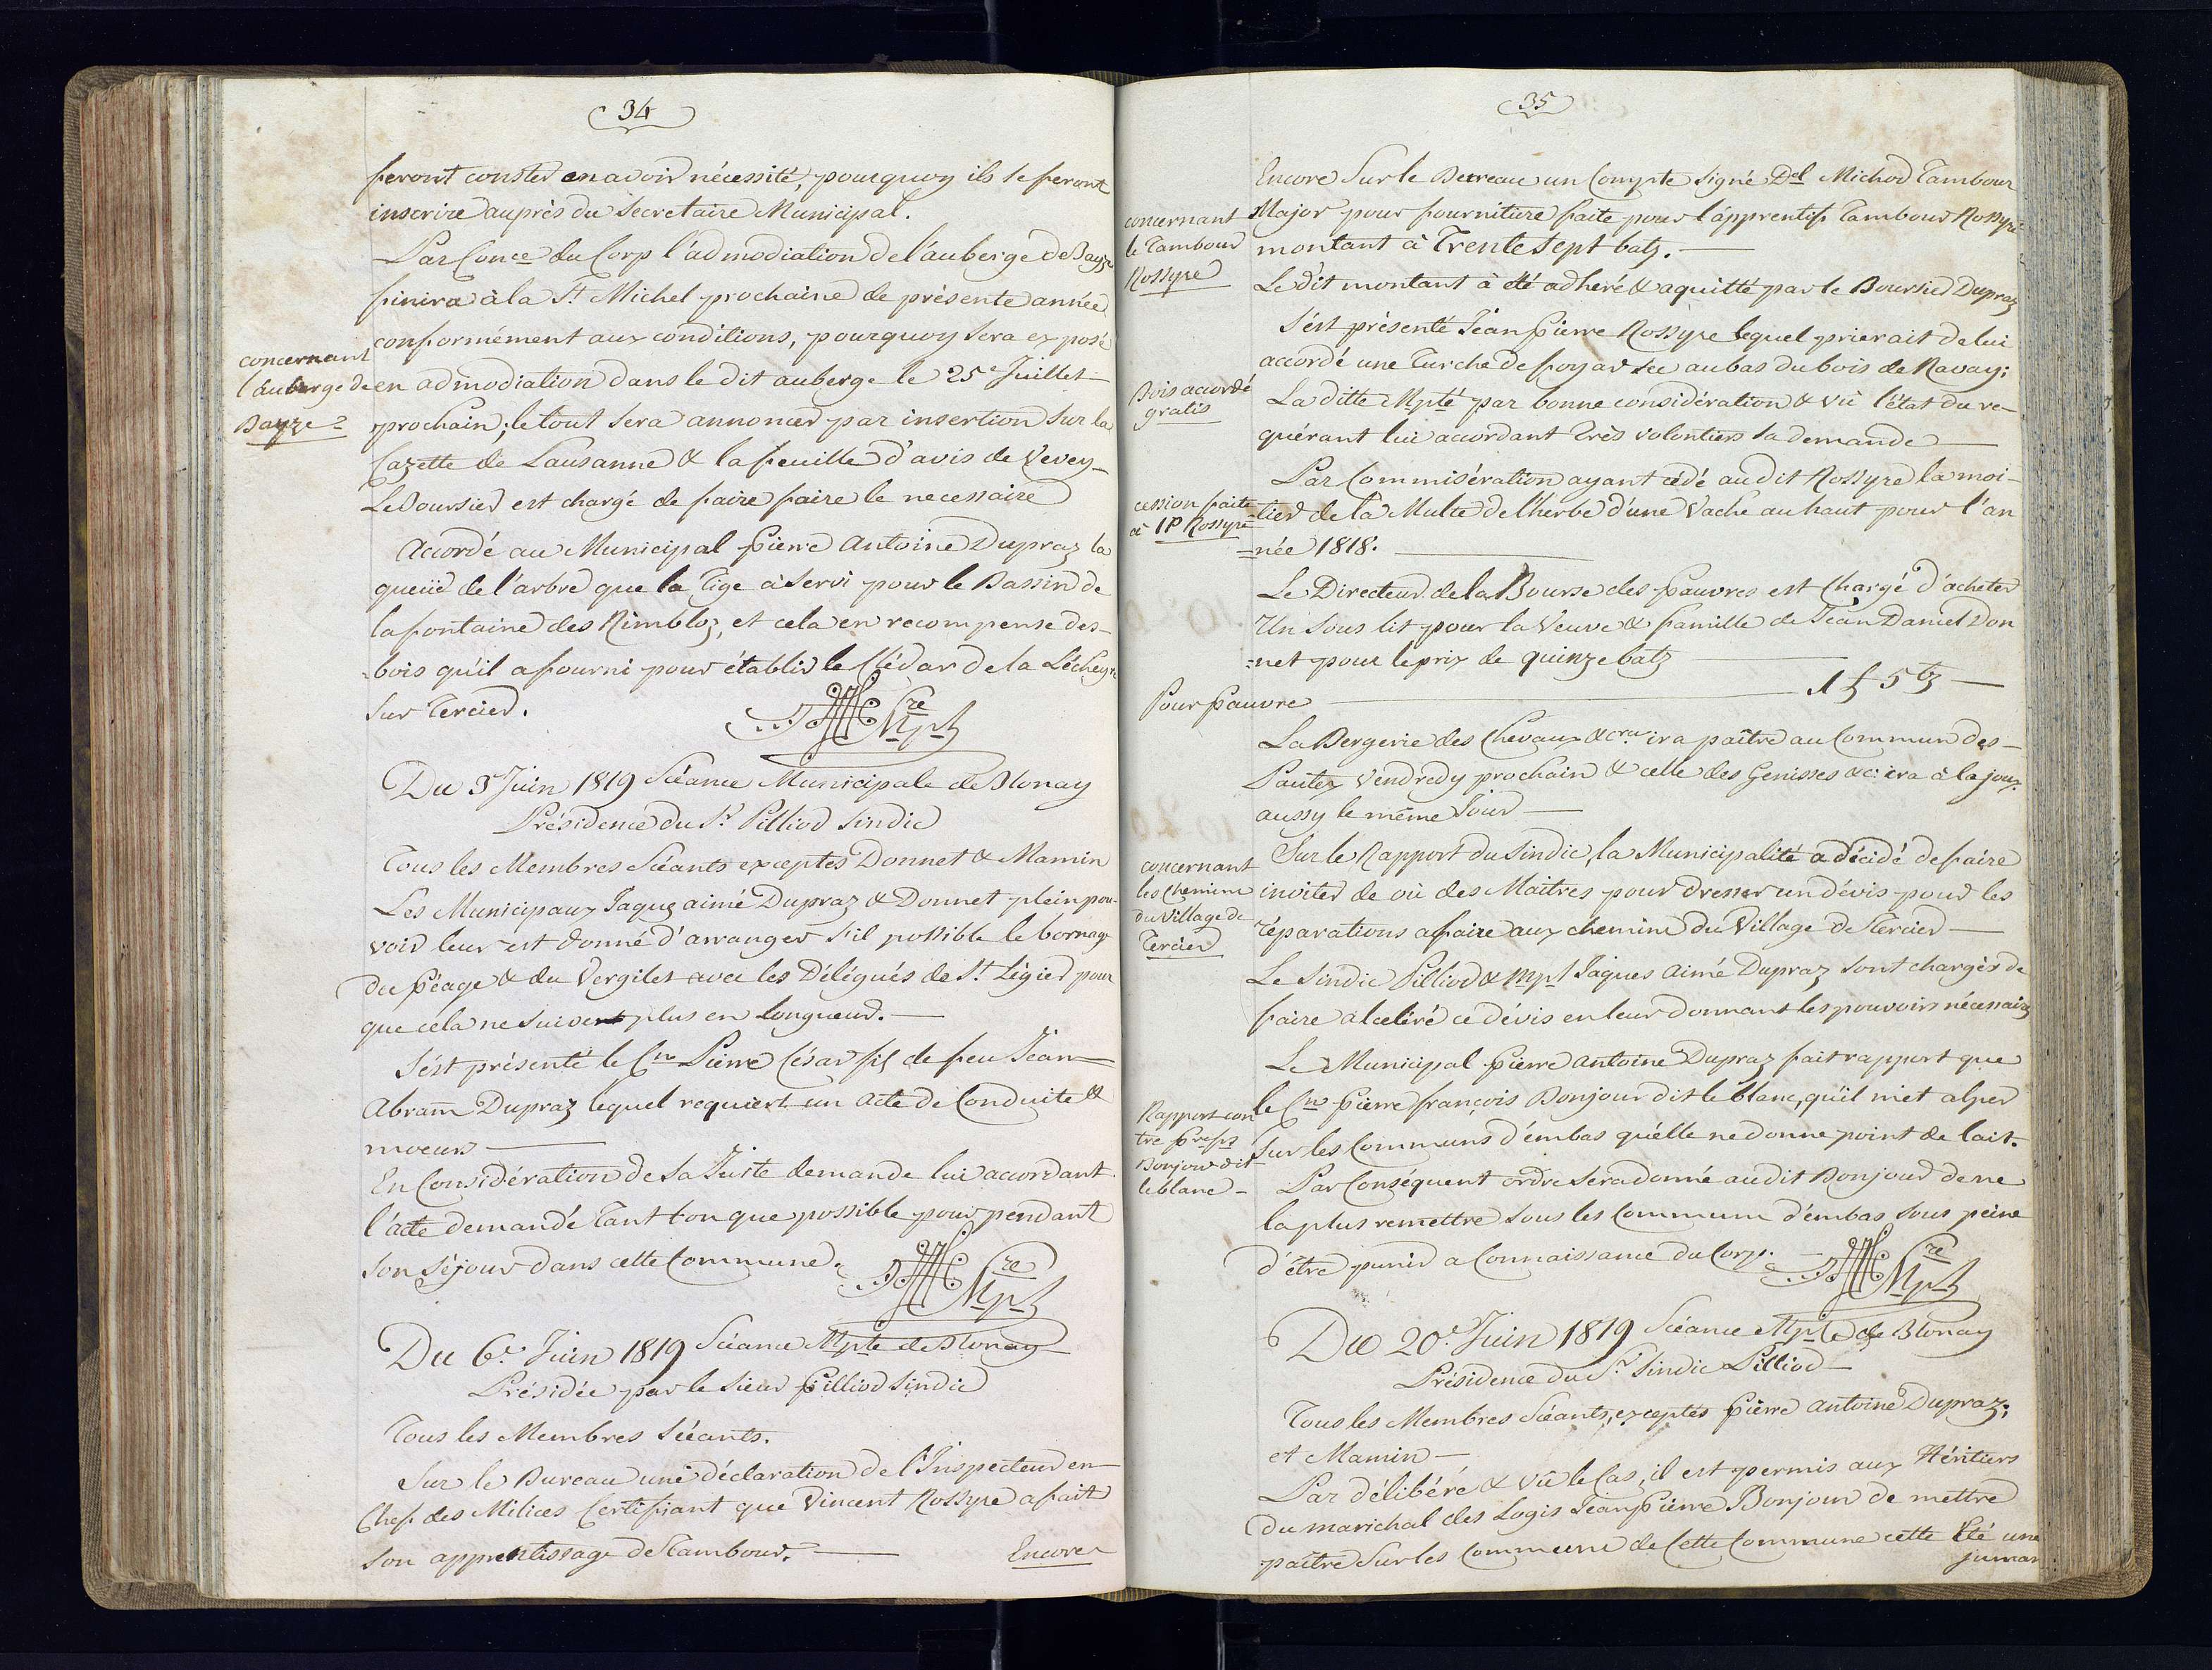 34
feront conster en avoir nécessité, pourquoy ils se feront
inscrire auprès du Secretaire Municipal.
Par Conce du Corp l'admodiation de l'auberge de Bayse
finira à la St Michel prochaine de présente année
conformément aux conditions, pourquoy sera exposé
concernant
l'auberge de
Bayze
en admodiation dans le dit auberge le 25e Juillet
prochain; le tout sera annoncer par insertion sur la
Gazette de Lausanne & la feuille d'avis de Vevey
Le Boursier est chargé de faire faire le necessaire
Accordé au Municipal Pierre Antoine Dupraz la
queüe de l'arbre que la Tige à servi pour le Bassin de
la fontaine des Rimbloz, et cela en recompense des
bois qu'il a fourni pour établir le Clédar de la Lécheyre
sur Tercier.
Sre Mpl
Du 3e Juin 1819 Séance Municipale de Blonay
Présidence du Sr Pilliod Sindic
Tous les Membres Séants exceptes Donnet & Mamin
Les Municipaux Jaques aimé Dupraz & Donnet plein pou-
voir leur est donné d'arranger s'il possible le bornage
du Péage & du Vergilet avec les Délégués de St Légier pour
que cela ne suivent plus en longueur.
S'ést présenté le Cn Pierre César fils de feu Jéan
Abram Dupraz lequel requiert un Acte de Conduite &
moeurs
En Considération de sa Juste demande lui accordant
l'acte demandé tant bon que possible pour pendant
son séjour dans cette Commune.
Sre Mpl
Du 6e Juin 1819 Séance Mpte de Blonay
Présidée par le Sieur Pilliod Sindic
Tous les Membres Séants.
Sur le Bureau une déclaration de l'Inspecteur en
Chef des Milices Certifiant que Vincent Rossyre a fait
son apprentissage de Tambour.
Encore
35
Encore Sur le Bereau un Compte signé Del Michod Tambour
concernant
le Tambour
Rossyre
Major pour fourniture faite pour l'apprentif Tambour Rossyre
montant à Trente sept batz.
Le dit montant à été adhéré & aquitté par le Boursier Dupraz
S'ést présenté Jéan Pierre Rossyre lequel prierait de lui
accordé une Turche de foyar sec au bas du bois de Ravay;
Bois accordé
gratis
La ditte Mpté par bonne considération & vû l'état du re-
quérant lui accordant très volontiers sa demande
Par Commisération ayant cédé au dit Rossyre la moi-
cession faite
à JP Rossyre
-tier de la Multe de l'herbe d'une Vache au haut pour l'an
=née 1818.
Le Directeur de la Bourse des Pauvres est Chargé d'acheter
Un sous lit pour la Veuve & famille de Jéan Daniel Don
=net pour le prix de quinze batz
Pour Pauvre 1 f 5 bz
La Bergerie des Chevaux &cra ira paître au Commun des
Pautex Vendredy prochain & celle des Genisses &c: ira à la joux
aussy le même Jour
Sur le Rapport du Sindic, la Municipalité a décidé de faire
concernant
les chemins
du Village de
Tercier
inviter de où des Maitres pour dresser un dévis pour les
réparations a faire aux chemins du Village de Tercier
Le Sindic Pilliod & Mpl Jaques Aimé Dupraz sont chargés de
faire alceliré ce dévis en leur donnant les pouvoirs nécessaires
Le Municipal Pierre Antoine Dupraz fait rapport que
Rapport con
tre Pre fçs
Bonjour dit
le blanc
le Cn Pierre françois Bonjour dit le blanc, qu'il met alper
sur les Communs d'embas qu'elle ne donne point de lait.
Par Conséquent ordre sera donné audit Bonjour de ne
la plus remettre sous les Commun d'embas sous peine
d'être punir a Connaissance du Corps.
Sre Mpl
Du 20e Juin 1819 Séance Mple de Blonay
Présidence du Sr Sindic Pilliod
Tous les Membres Séants, exceptés Pierre Antoine Dupraz;
et Mamin
Par délibéré & vû le Cas, il est permis aux Héritiers
du marichal des Logis Jéan Pierre Bonjour de mettre
paître Sur les Commun de Cette Commune cette Eté une
jumar